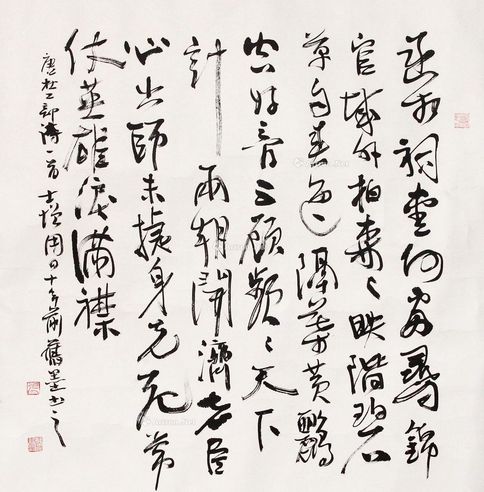 丞相祠堂何處尋錦
官城外柏森〻映階碧
草自春色隔葉黃鸝
空好音三顧頻〻天下
計兩朝開濟老臣
心出師未捷身先死常
使英雄淚滿襟
唐杜工部詩一首 十年前舊墨